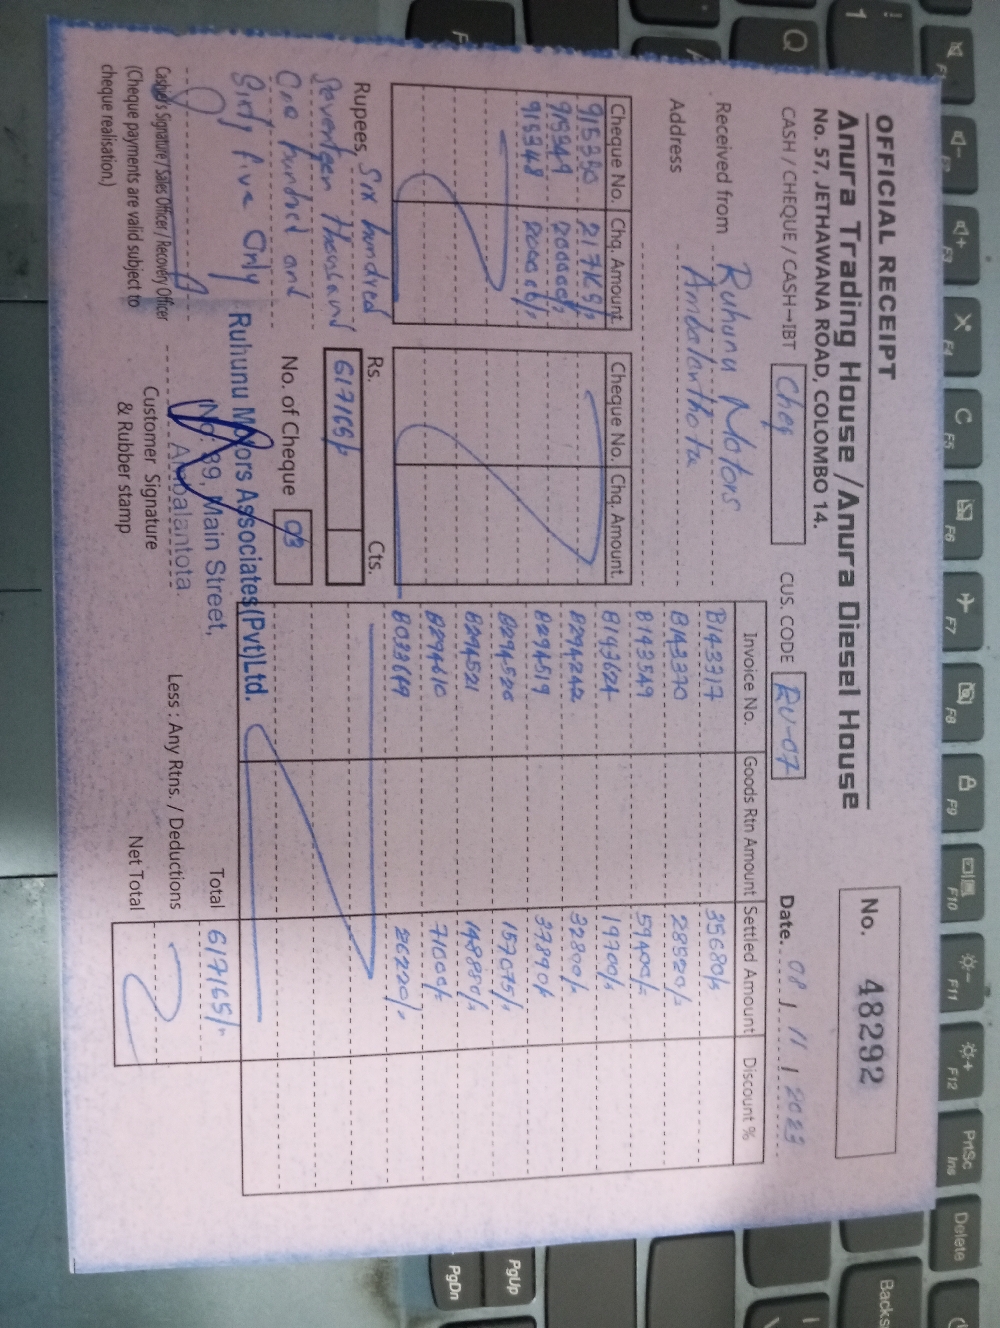 OFFICIAL RECEIPT
Anura Trading House / Anura Diesel House
No. 57, JETHAWANA ROAD, COLOMBO 14.
No. 48292
CASH / CHEQUE / CASH→IBT Cheq
CUS. CODE RU-07
Date. 08 / 11 / 2023
Received from Ruhunu Motors
Address Ambalanthota
Cheque No. Chq. Amount
915350 217165/-
915349 200000/-
915348 200000/-
Cheque No. Chq. Amount
Invoice No. Goods Rtn Amount Settled Amount Discount %
B143317 35680/-
B143370 28520/-
B143549 59400/-
B143624 19700/-
B294242 32800/-
B294519 37890/-
B294520 157075/-
B294521 148880/-
B294610 71000/-
B033649 26220/-
Rupees, Six hundred
Seventeen thousand
One hundred and
Sixty five Only
Rs. Cts.
617165/-
No. of Cheque 03
Ruhunu Motors Associates (Pvt) Ltd.
No: 39, Main Street,
Ambalantota.
Cashier's Signature / Sales Officer / Recovery Officer
(Cheque payments are valid subject to
cheque realisation.)
Customer Signature
& Rubber stamp
Total 617165/-
Less : Any Rtns. / Deductions
Net Total
Q
!
1
F1
F3
F4
F5
F6
F7
F8
F9
F10
F11
F12
PrtSc
Ins
Delete
Backs
PgUp
PgDn